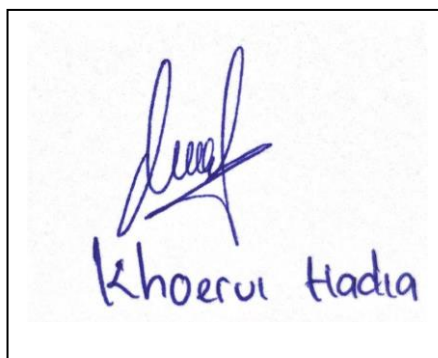 Khoerul Hadia